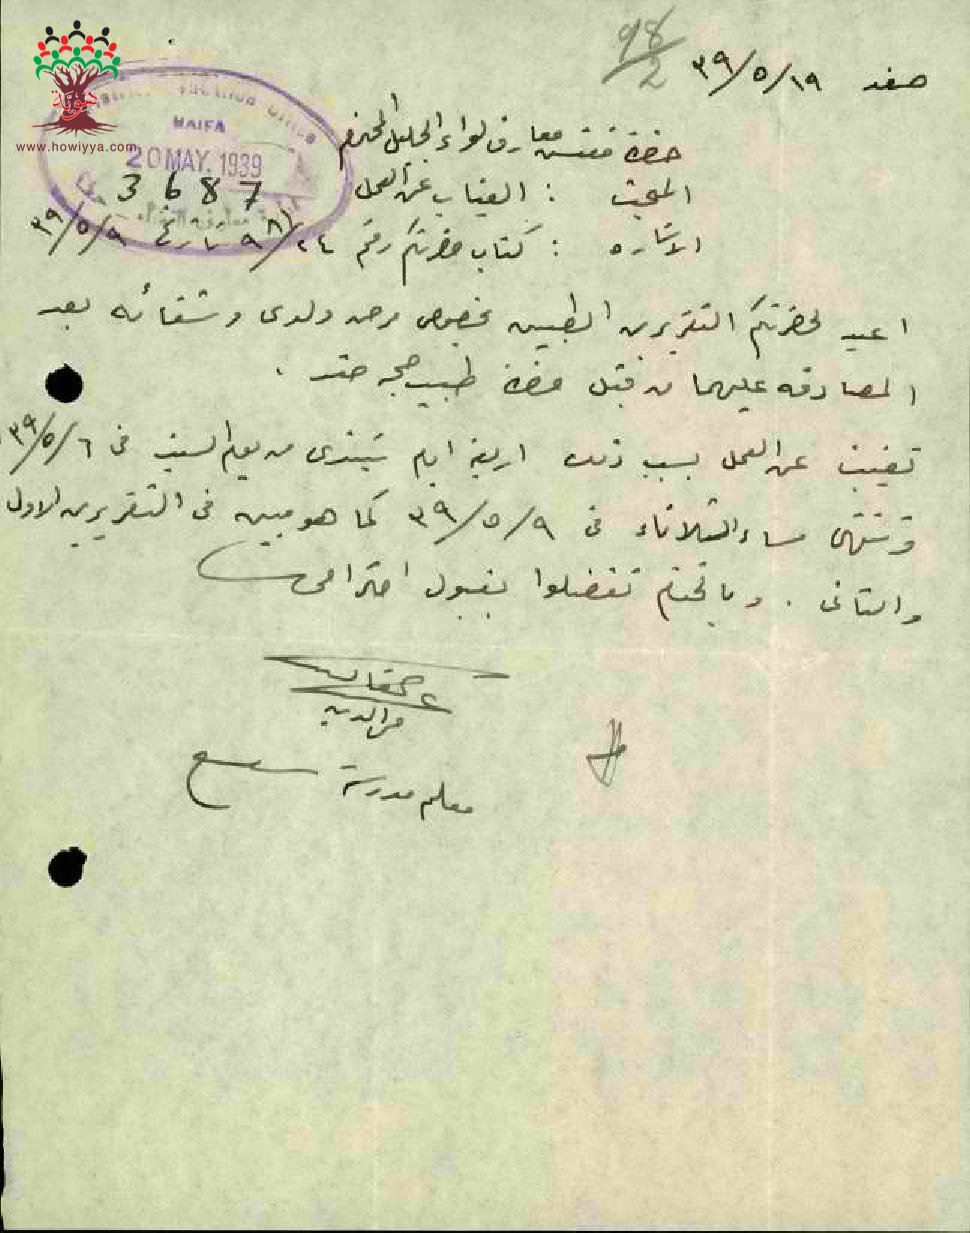 98/2
صفد ١٩/٥/٣٩
www.howiyya.com
هوية
HAIFA
20 MAY. 1939
3687
حضرة مفتش معارف لواء الجليل المحترم
المبحث : الغياب عن العمل
الاشاره : كتاب حضرتكم رقم ٩٨/٢٤ تاريخ ٩/٥/٣٩
اعيد لحضرتكم التقريرين الطبيين بخصوص مرض ولدي وشفائه بعد
المصادقه عليهما من قبل حضرة طبيب صحة صفد .
تغيبت عن العمل بسبب ذلك اربعة ايام تبتدى من يوم السبت فى ٦/٥/٣٩
وتنتهى مساء الثلاثاء فى ٩/٥/٣٩ كما هو مبين فى التقريرين الاول
والثانى . وبالختام تفضلوا بقبول احترامى
معلم مدرسة سعسع